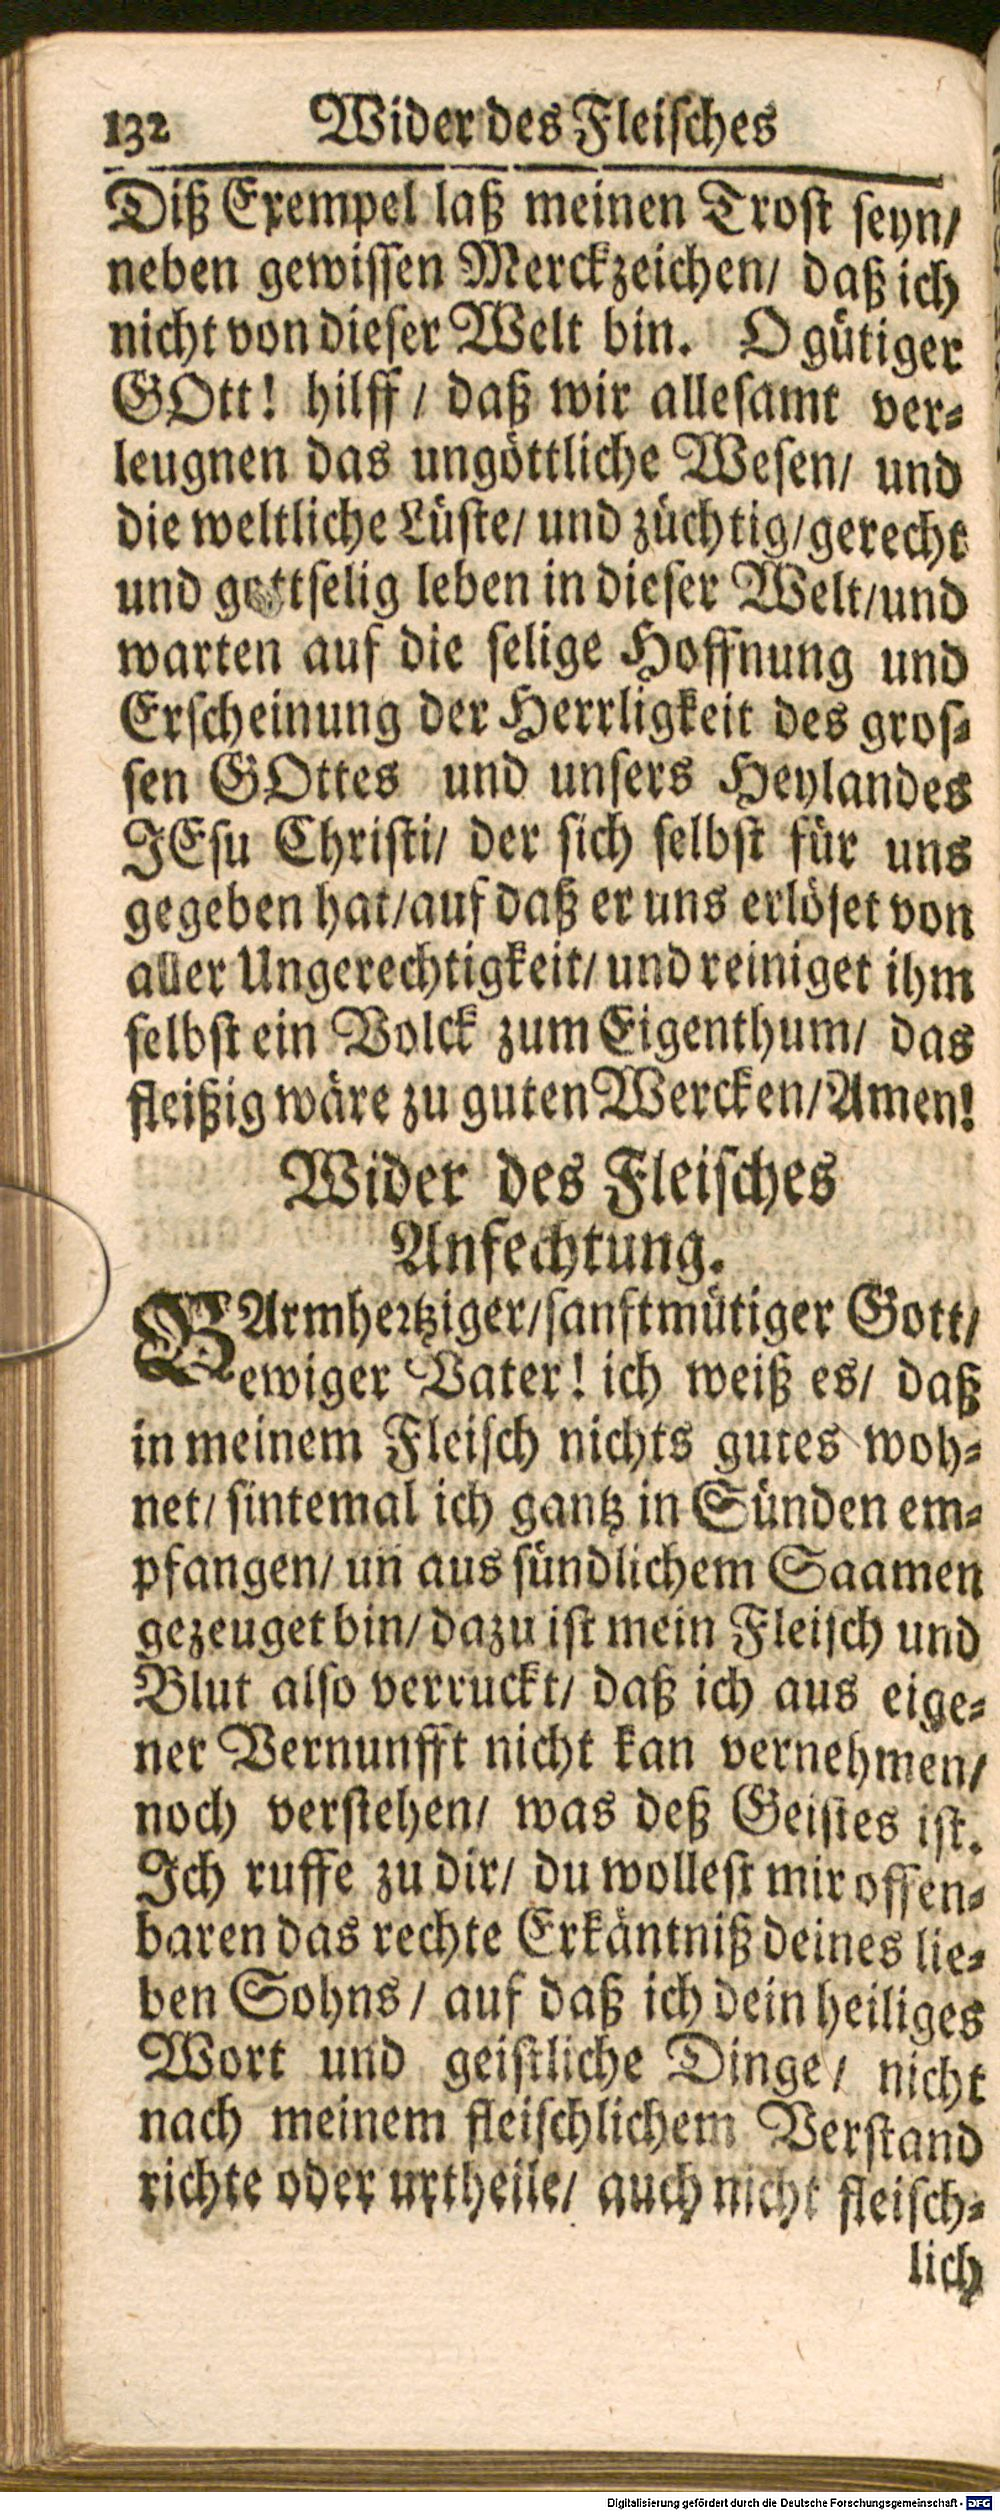 132 Wider des Fleisches
Diß Exempel laß meinen Trost seyn/
neben gewissen Merckzeichen/ daß ich
nicht von dieser Welt bin. O gütiger
GOtt! hilff / daß wir allesamt ver-
leugnen das ungöttliche Wesen/ und
die weltliche Lüste/ und züchtig/gerecht
und gottselig leben in dieser Welt/und
warten auf die selige Hoffnung und
Erscheinung der Herrligkeit des gros-
sen GOttes und unsers Heylandes
JEsu Christi/ der sich selbst für uns
gegeben hat/auf daß er uns erlöset von
aller Ungerechtigkeit/ und reiniget ihm
selbst ein Volck zum Eigenthum/ das
fleißig wäre zu guten Wercken/Amen!
Wider des Fleisches
Anfechtung.
BArmhertziger/sanftmütiger Gott/
ewiger Vater! ich weiß es/ daß
in meinem Fleisch nichts gutes woh-
net/ sintemal ich gantz in Sünden em-
pfangen/ un̄ aus sündlichem Saamen
gezeuget bin/ dazu ist mein Fleisch und
Blut also verruckt/ daß ich aus eige-
ner Vernunfft nicht kan vernehmen/
noch verstehen/ was deß Geistes ist.
Ich ruffe zu dir/ du wollest mir offen-
baren das rechte Erkäntniß deines lie-
ben Sohns / auf daß ich dein heiliges
Wort und geistliche Dinge/ nicht
nach meinem fleischlichem Verstand
richte oder urtheile/ auch nicht fleisch-
lich
Digitalisierung gefördert durch die Deutsche Forschungsgemeinschaft - DFG